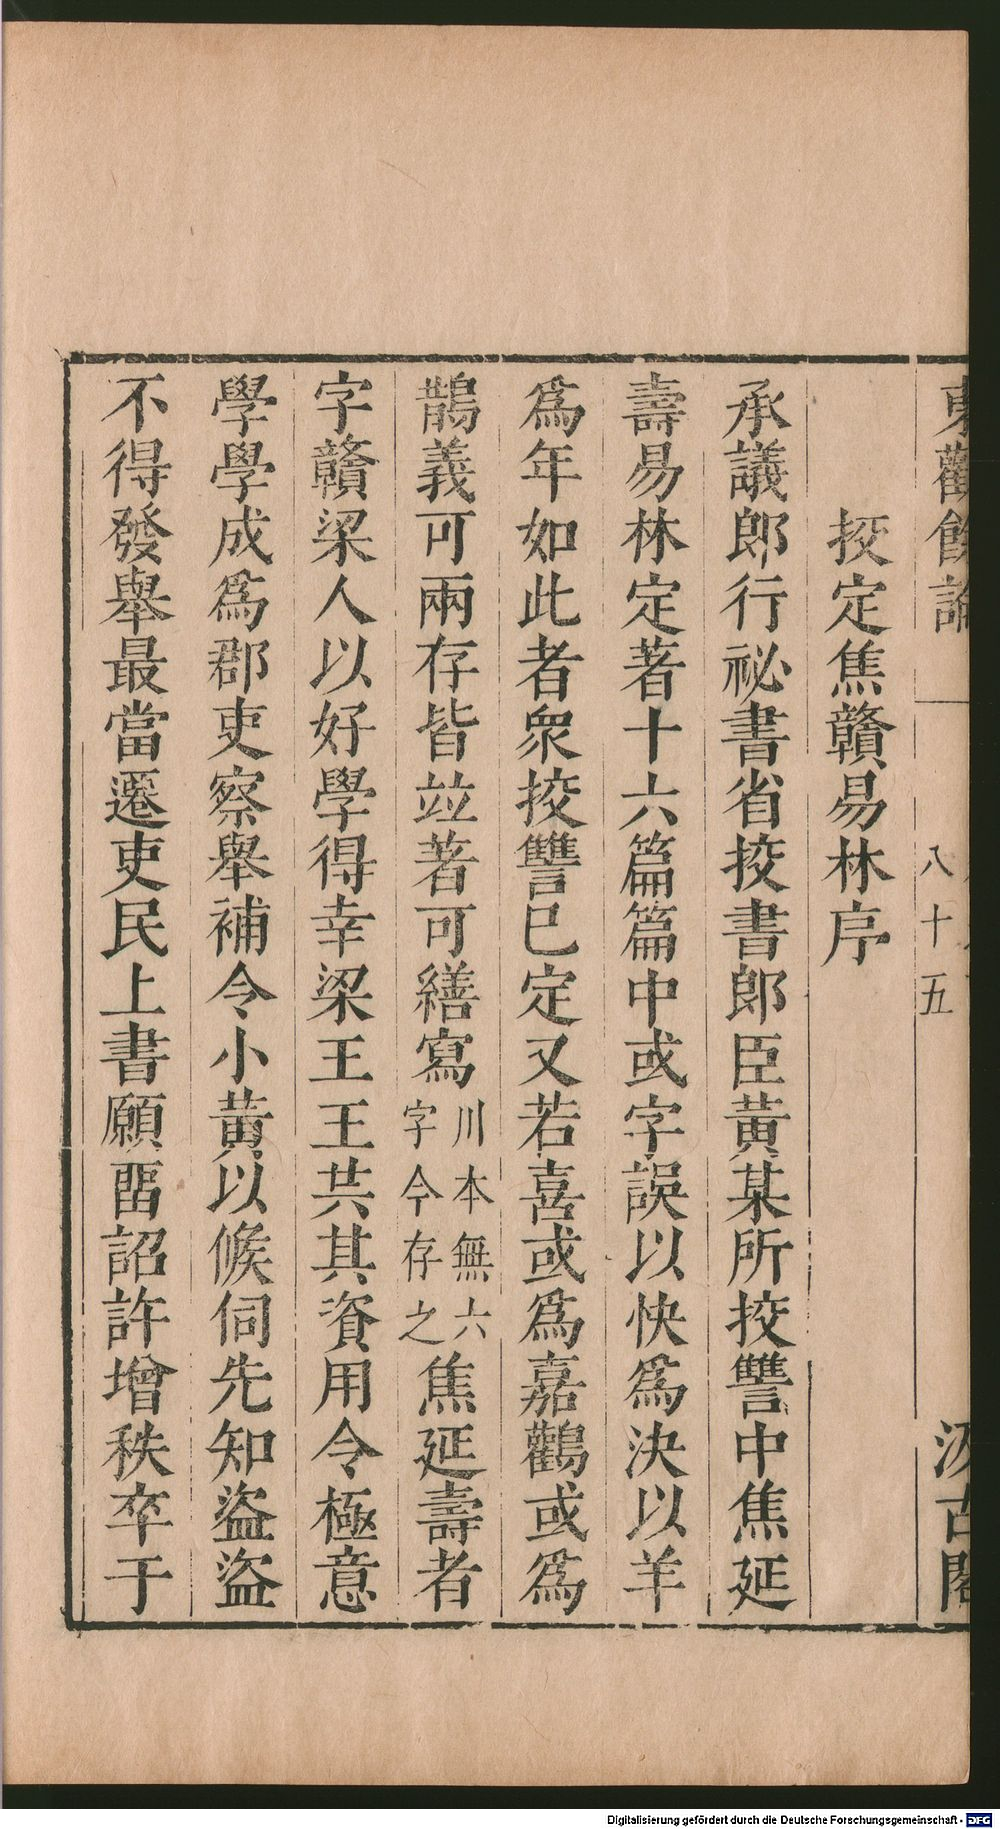 東觀餘論
八十五
汲古閣
挍定焦贛易林序
承議郎行祕書省挍書郎臣黃某所挍讐中焦延
壽易林定著十六篇篇中或字誤以快爲決以羊
爲年如此者衆挍讐已定又若喜或爲嘉鸛或爲
鵲義可兩存皆竝著可繕寫
川本無六
字今存之
焦延壽者
字贛梁人以好學得幸梁王王共其資用令極意
學學成爲郡吏察舉補令小黃以候伺先知盜盜
不得發舉最當遷吏民上書願畱詔許增秩卒于
Digitalisierung gefördert durch die Deutsche Forschungsgemeinschaft - DFG